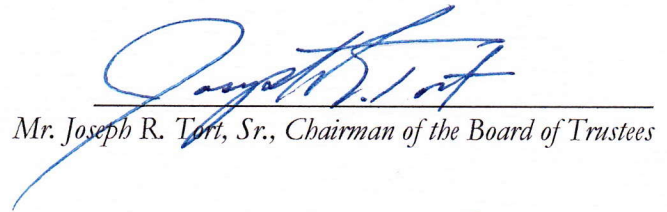 Joseph R. Tort
Mr. Joseph R. Tort, Sr., Chairman of the Board of Trustees